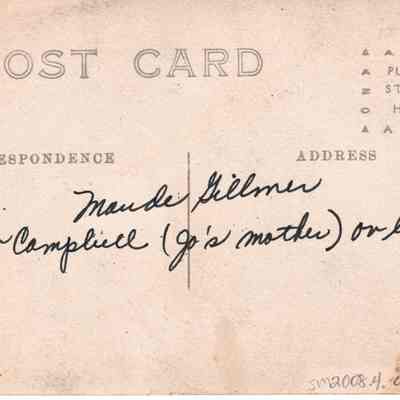 OST CARD
A
PL
ST
H
A
ESPONDENCE
ADDRESS
Maude Gillmer
Campbell (Jo's mother) on
sm2008.4.